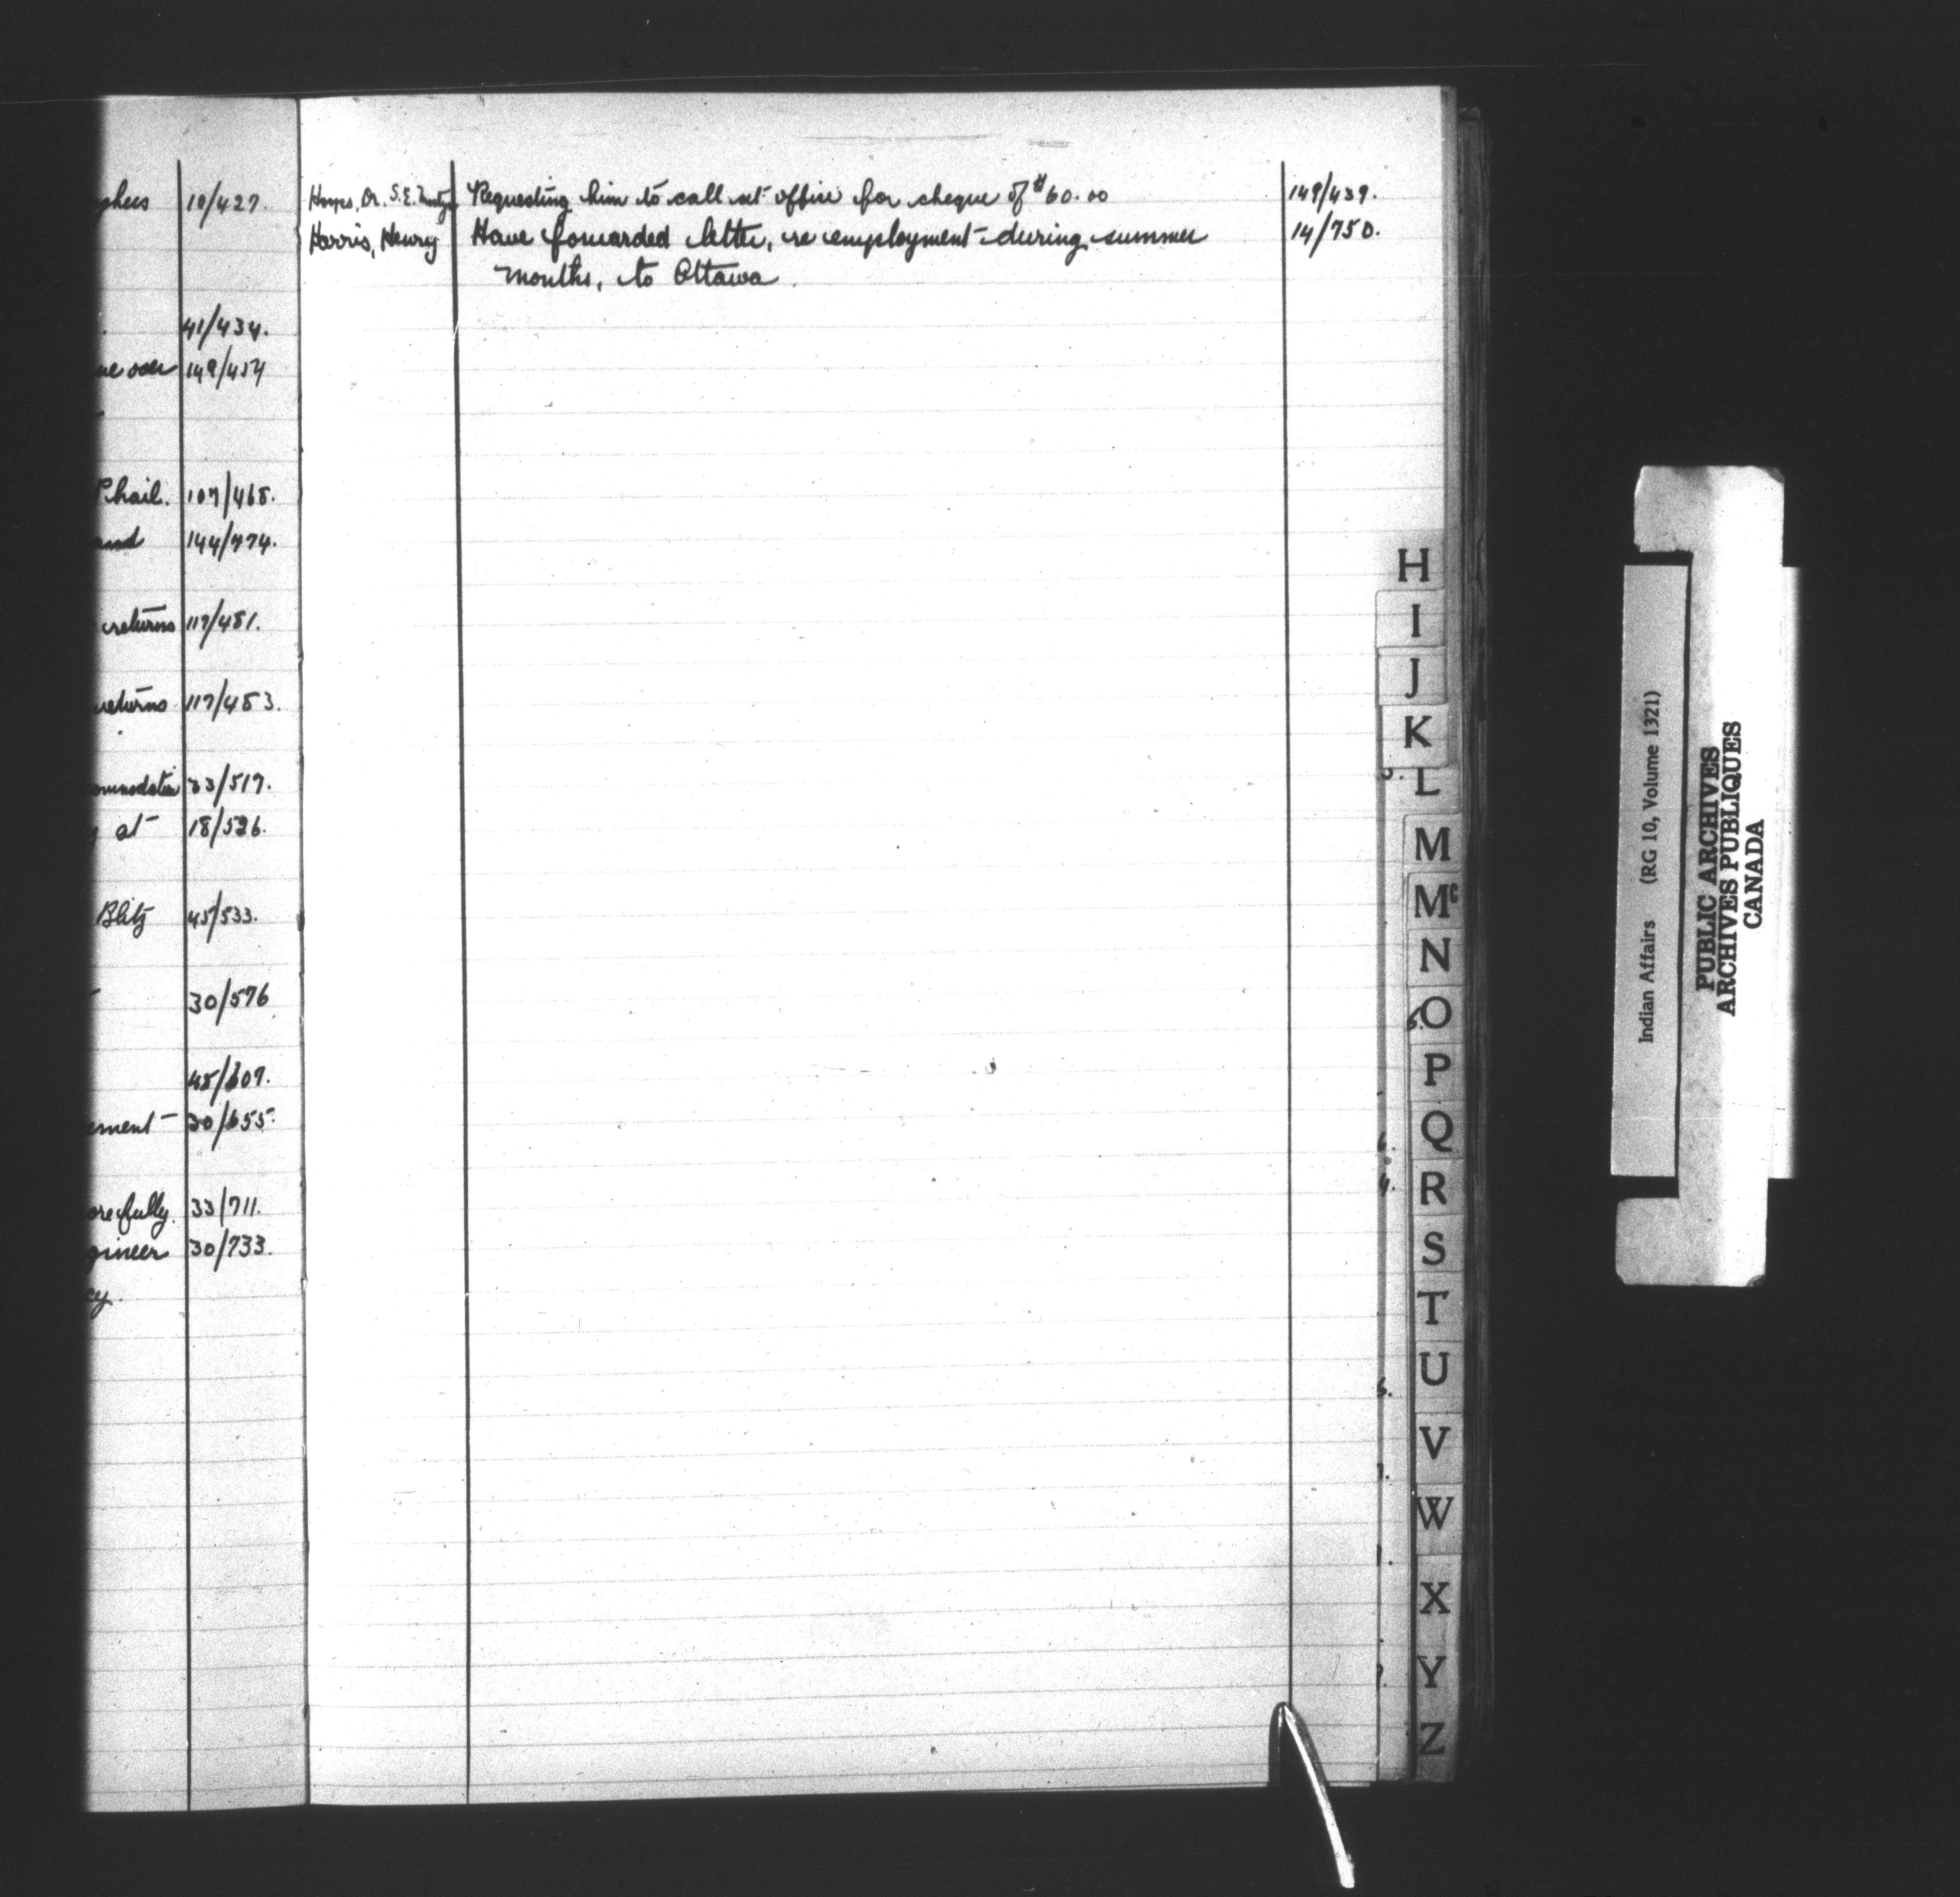 10/427.
41/434.
ne over 149/454
Phail. 107/468.
and 144/474.
returns 117/481.
returns 117/483.
ommodation 33/517.
at 18/526.
Blitz 45/533.
30/576
45/609.
ement 30/655.
orefully. 33/711.
gineer 30/733.
cy.
Dr. S.E. Requesting him to call at office for cheque of $60.00 149/439.
Harris, Henry Have forwarded letter, re employment during summer 14/750.
months, to Ottawa.
H
I
J
K
L
M
Mc
N
O
P
Q
R
S
T
U
V
W
X
Y
Z
Indian Affairs (RG 10, Volume 1321)
PUBLIC ARCHIVES
ARCHIVES PUBLIQUES
CANADA